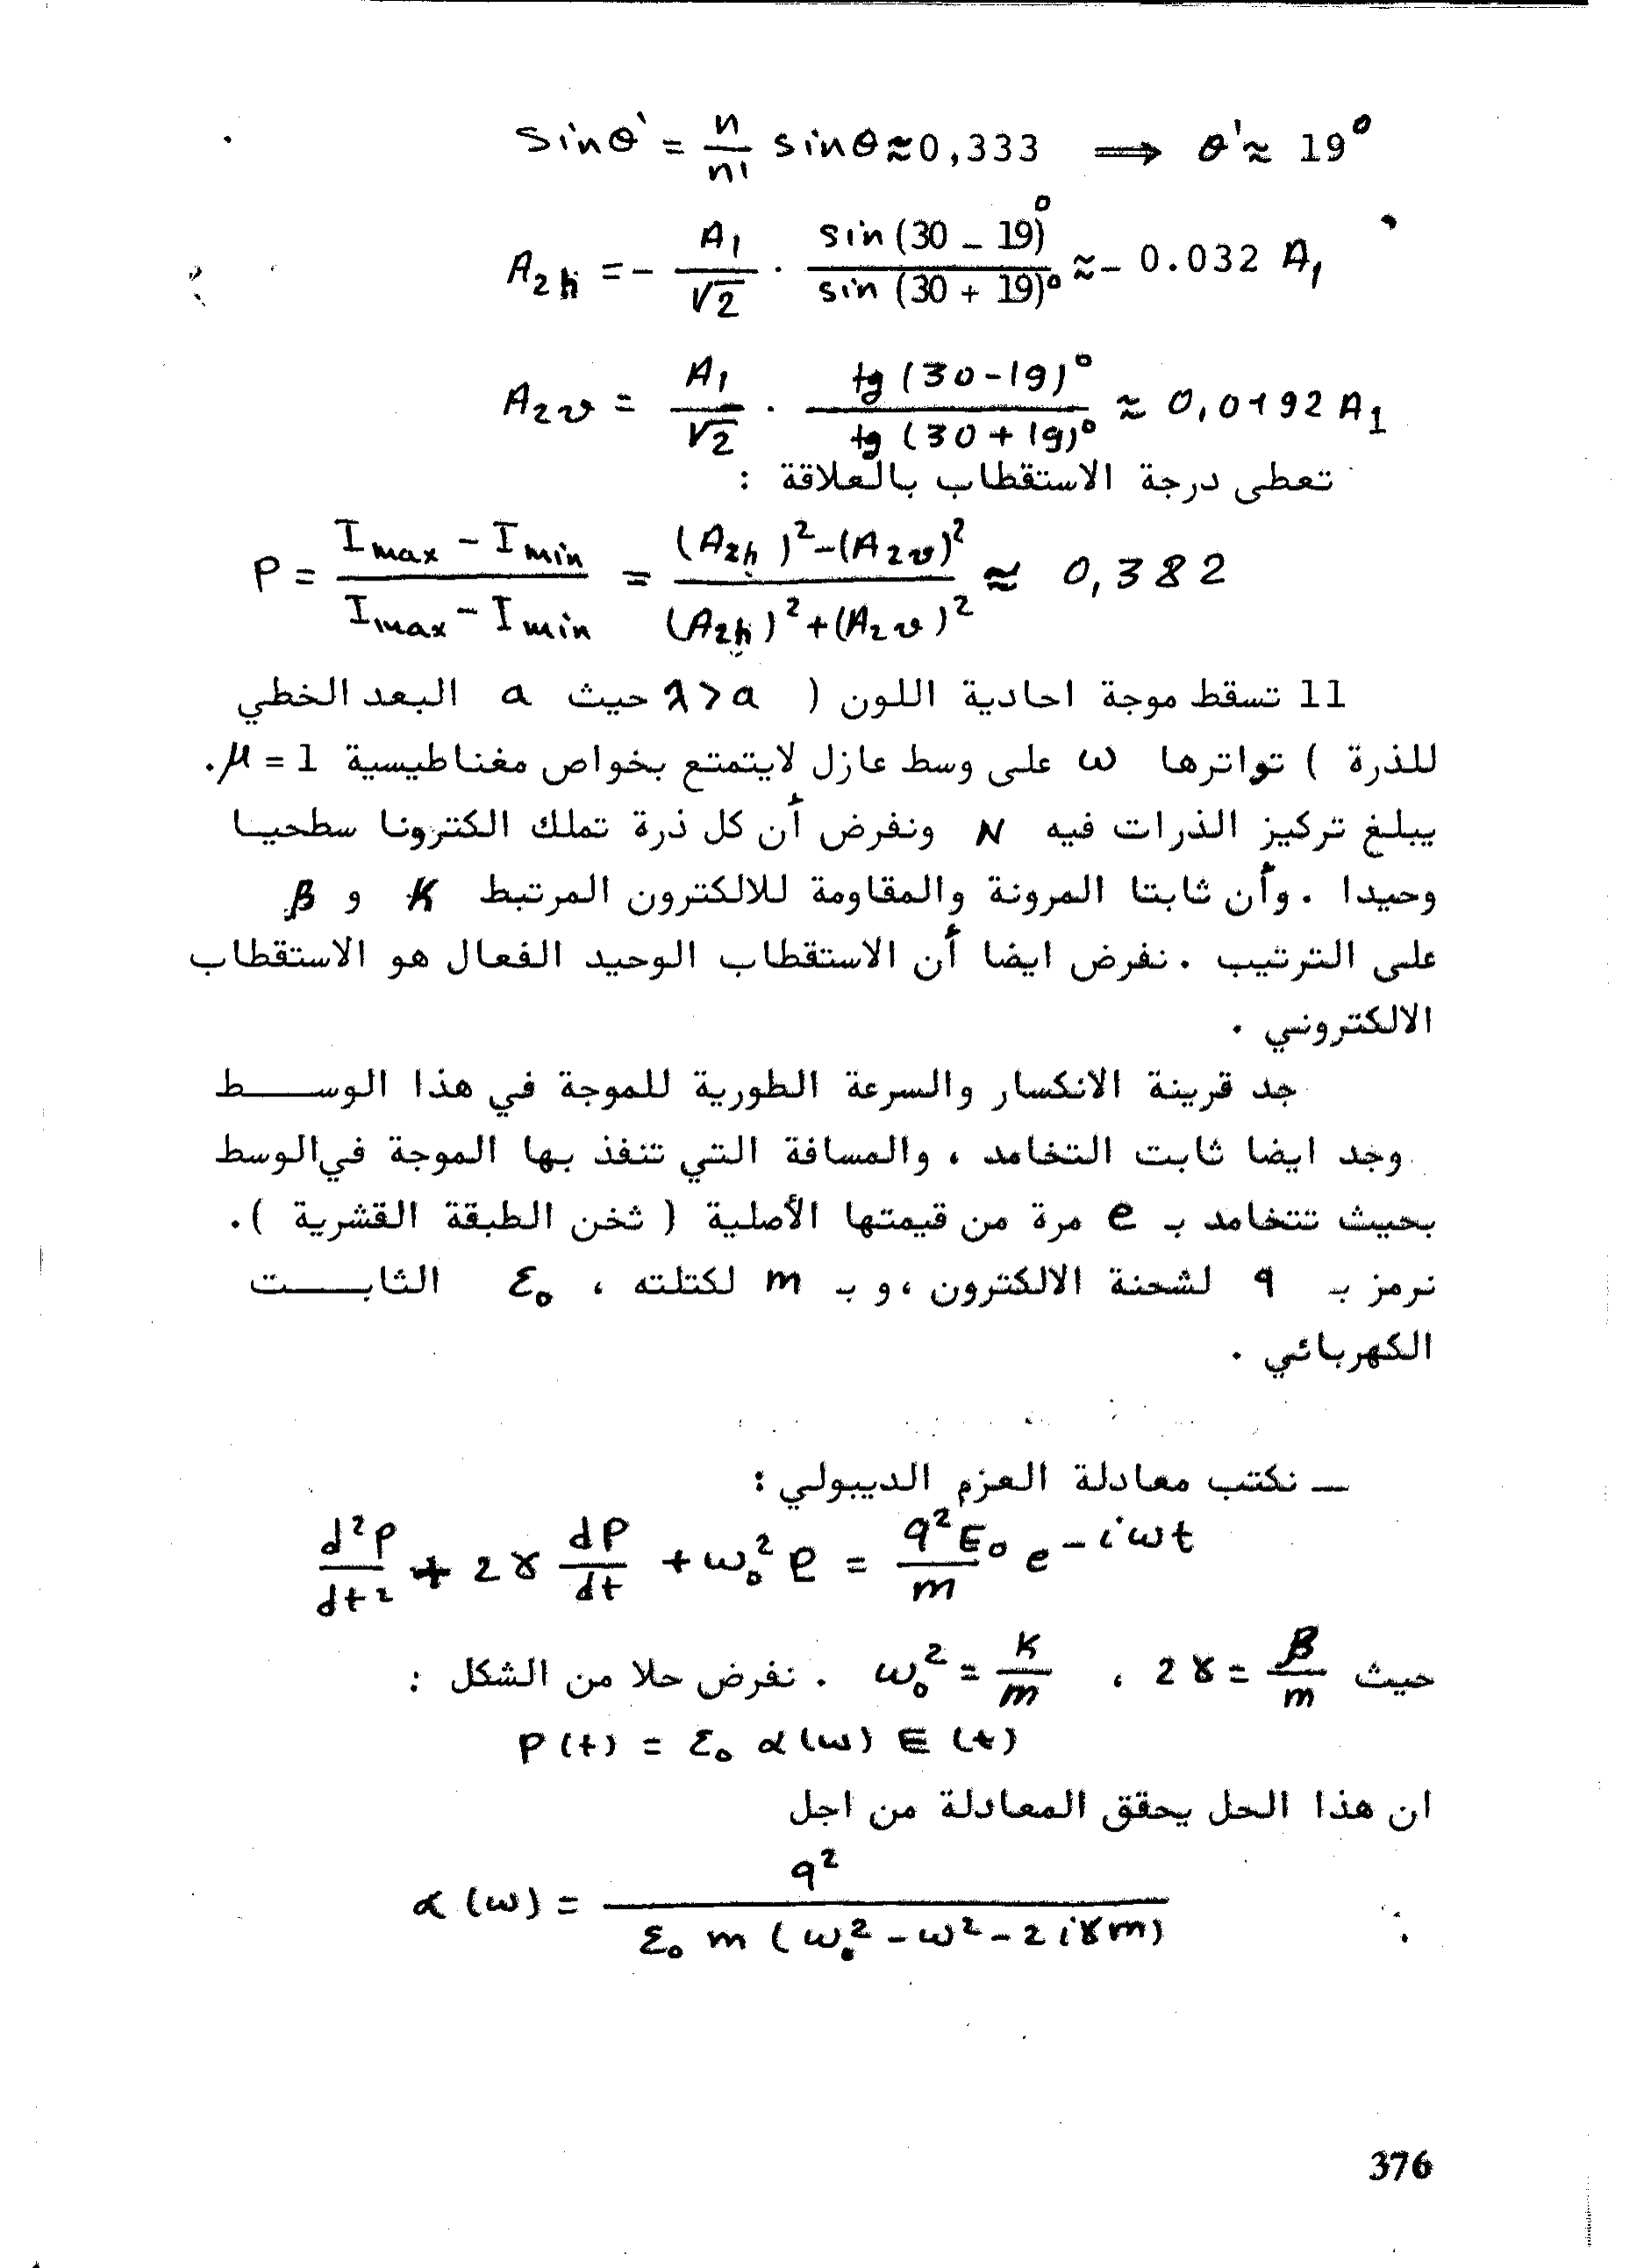 sinθ' = n/n' sinθ ≈ 0,333 ⟹ θ' ≈ 19°
A₂ₕ = − A₁/√2 · sin (30 − 19)°/sin (30 + 19)° ≈ − 0.032 A₁
A₂ᵥ = A₁/√2 · tg (30-19)°/tg (30+19)° ≈ 0,0192 A₁
تعطى درجة الاستقطاب بالعلاقة :
P = (I max − I min)/(I max − I min) = ((A₂ₕ)²−(A₂ᵥ)²)/((A₂ₕ)²+(A₂ᵥ)²) ≈ 0,382
11 تسقط موجة احادية اللون ( λ>a حيث a البعد الخطي
للذرة ) تواترها ω على وسط عازل لايتمتع بخواص مغناطيسية μ = 1.
يبلغ تركيز الذرات فيه N ونفرض أن كل ذرة تملك الكترونا سطحيا
وحيدا . وأن ثابتا المرونة والمقاومة للالكترون المرتبط K و β
على الترتيب . نفرض ايضا أن الاستقطاب الوحيد الفعال هو الاستقطاب
الالكتروني .
جد قرينة الانكسار والسرعة الطورية للموجة في هذا الوسـط
وجد ايضا ثابت التخامد ، والمسافة التي تنفذ بها الموجة في الوسط
بحيث تتخامد بـ e مرة من قيمتها الأصلية ( ثخن الطبقة القشرية ).
نرمز بـ q لشحنة الالكترون ، و بـ m لكتلته ، ε₀ الثابـت
الكهربائي .
ـ نكتب معادلة العزم الديبولي :
d²P/dt² + 2γ dP/dt + ω₀² P = q²E₀/m e^−iωt
حيث 2γ = β/m ، ω₀² = K/m . نفرض حلا من الشكل :
P(t) = ε₀ α(ω) E(t)
ان هذا الحل يحقق المعادلة من اجل
α(ω) = q²/(ε₀ m (ω₀² − ω² − 2iγm))
376